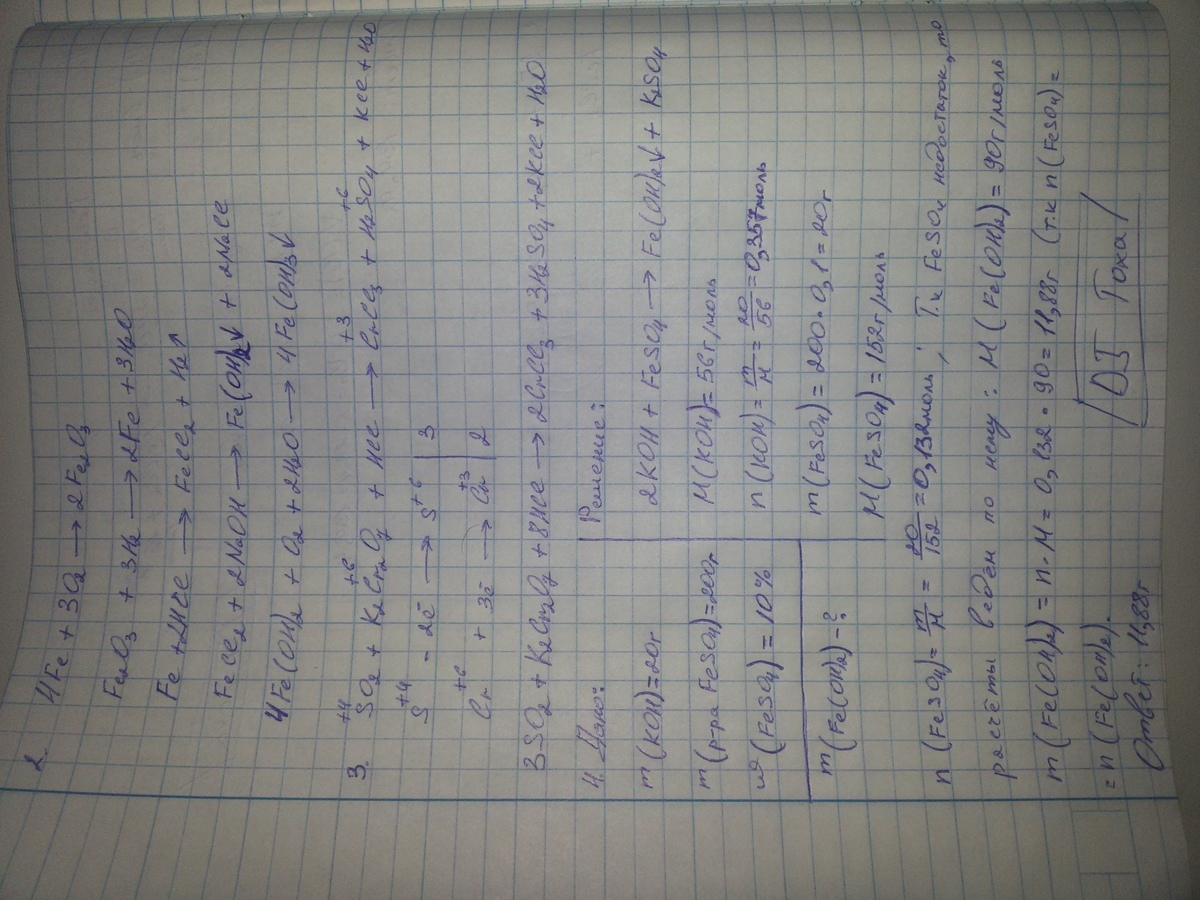 2. 4Fe + 3O₂ → 2Fe₂O₃
Fe₂O₃ + 3H₂ → 2Fe + 3H₂O
Fe + 2HCl → FeCl₂ + H₂↑
FeCl₂ + 2NaOH → Fe(OH)₂↓ + 2NaCl
4Fe(OH)₂ + O₂ + 2H₂O → 4Fe(OH)₃↓
+4 +6 +3 +6
3. SO₂ + K₂Cr₂O₇ + HCl → CrCl₃ + H₂SO₄ + KCl + H₂O
+4 +6
S - 2ē → S | 3
+6 +3
Cr + 3ē → Cr | 2
3SO₂ + K₂Cr₂O₇ + 8HCl → 2CrCl₃ + 3H₂SO₄ + 2KCl + H₂O
4. Дано: Решение:
m(KOH)=20г 2KOH + FeSO₄ → Fe(OH)₂↓ + K₂SO₄
m(р-ра FeSO₄)=200г M(KOH)=56г/моль
ω(FeSO₄)=10% n(KOH)=m/M=20/56=0,357моль
m(FeSO₄)=200•0,1=20г
m(Fe(OH)₂)-? M(FeSO₄)=152г/моль
n(FeSO₄)=m/M=20/152=0,132моль; Т.к FeSO₄ недостаток, то
расчёты ведём по нему: M(Fe(OH)₂)=90г/моль
m(Fe(OH)₂)=n•M=0,132•90=11,88г (т.к n(FeSO₄)=
=n(Fe(OH)₂).
Ответ: 11,88г
/DJ Тока/